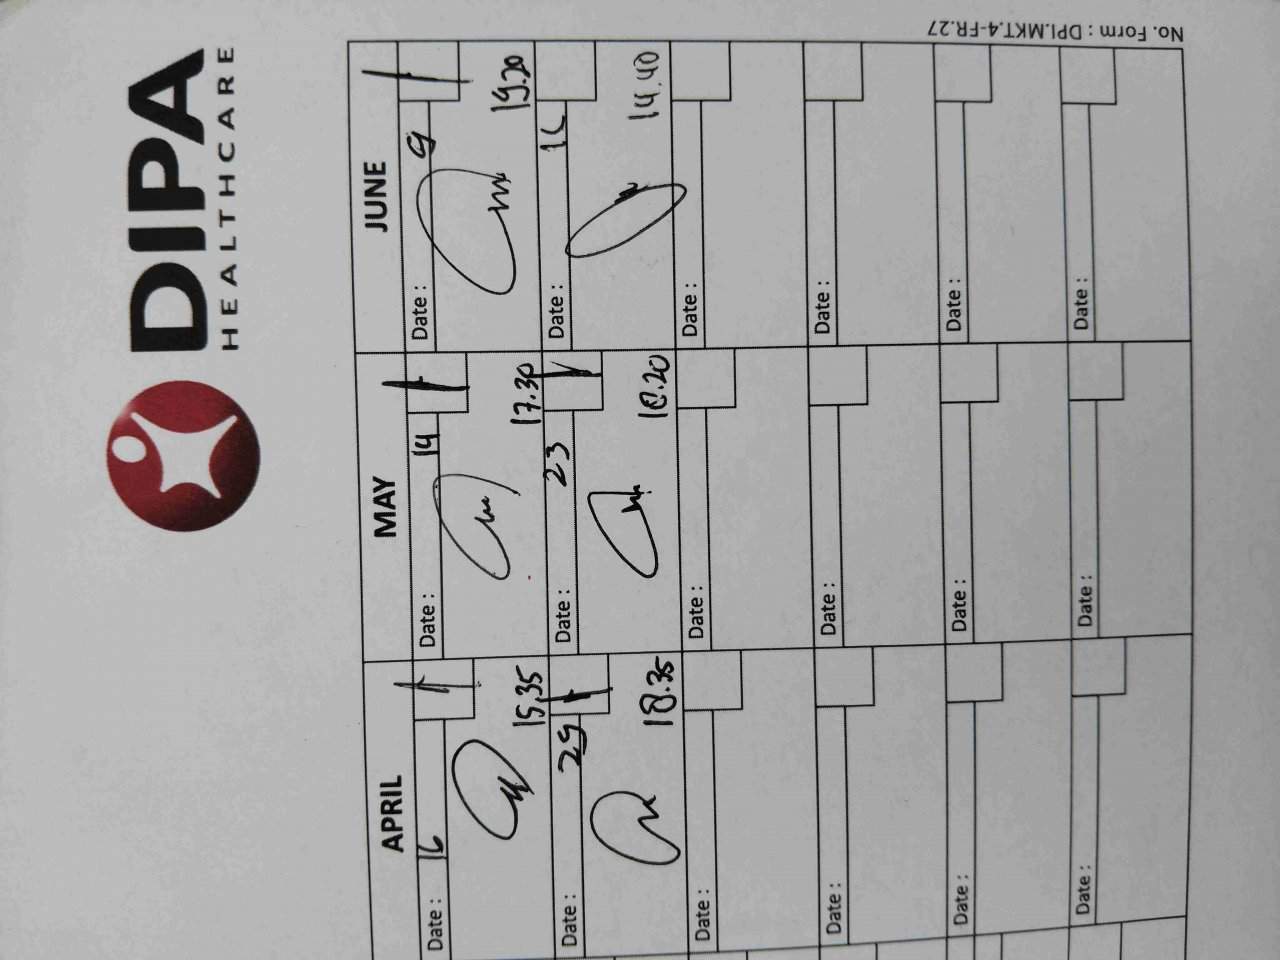 DIPA
HEALTHCARE
APRIL MAY JUNE
Date : 16 Date : 14 Date : 9
15.35 17.30 19.20
Date : 29 Date : 23 Date : 16
18.35 18.20 14.40
Date : Date : Date :
Date : Date : Date :
Date : Date : Date :
Date : Date : Date :
No. Form : DPI.MKT.4-FR.27